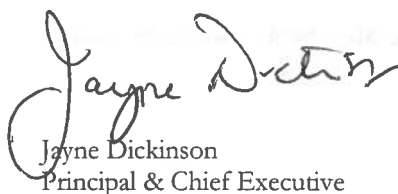 Jayne Dickinson
Jayne Dickinson
Principal & Chief Executive